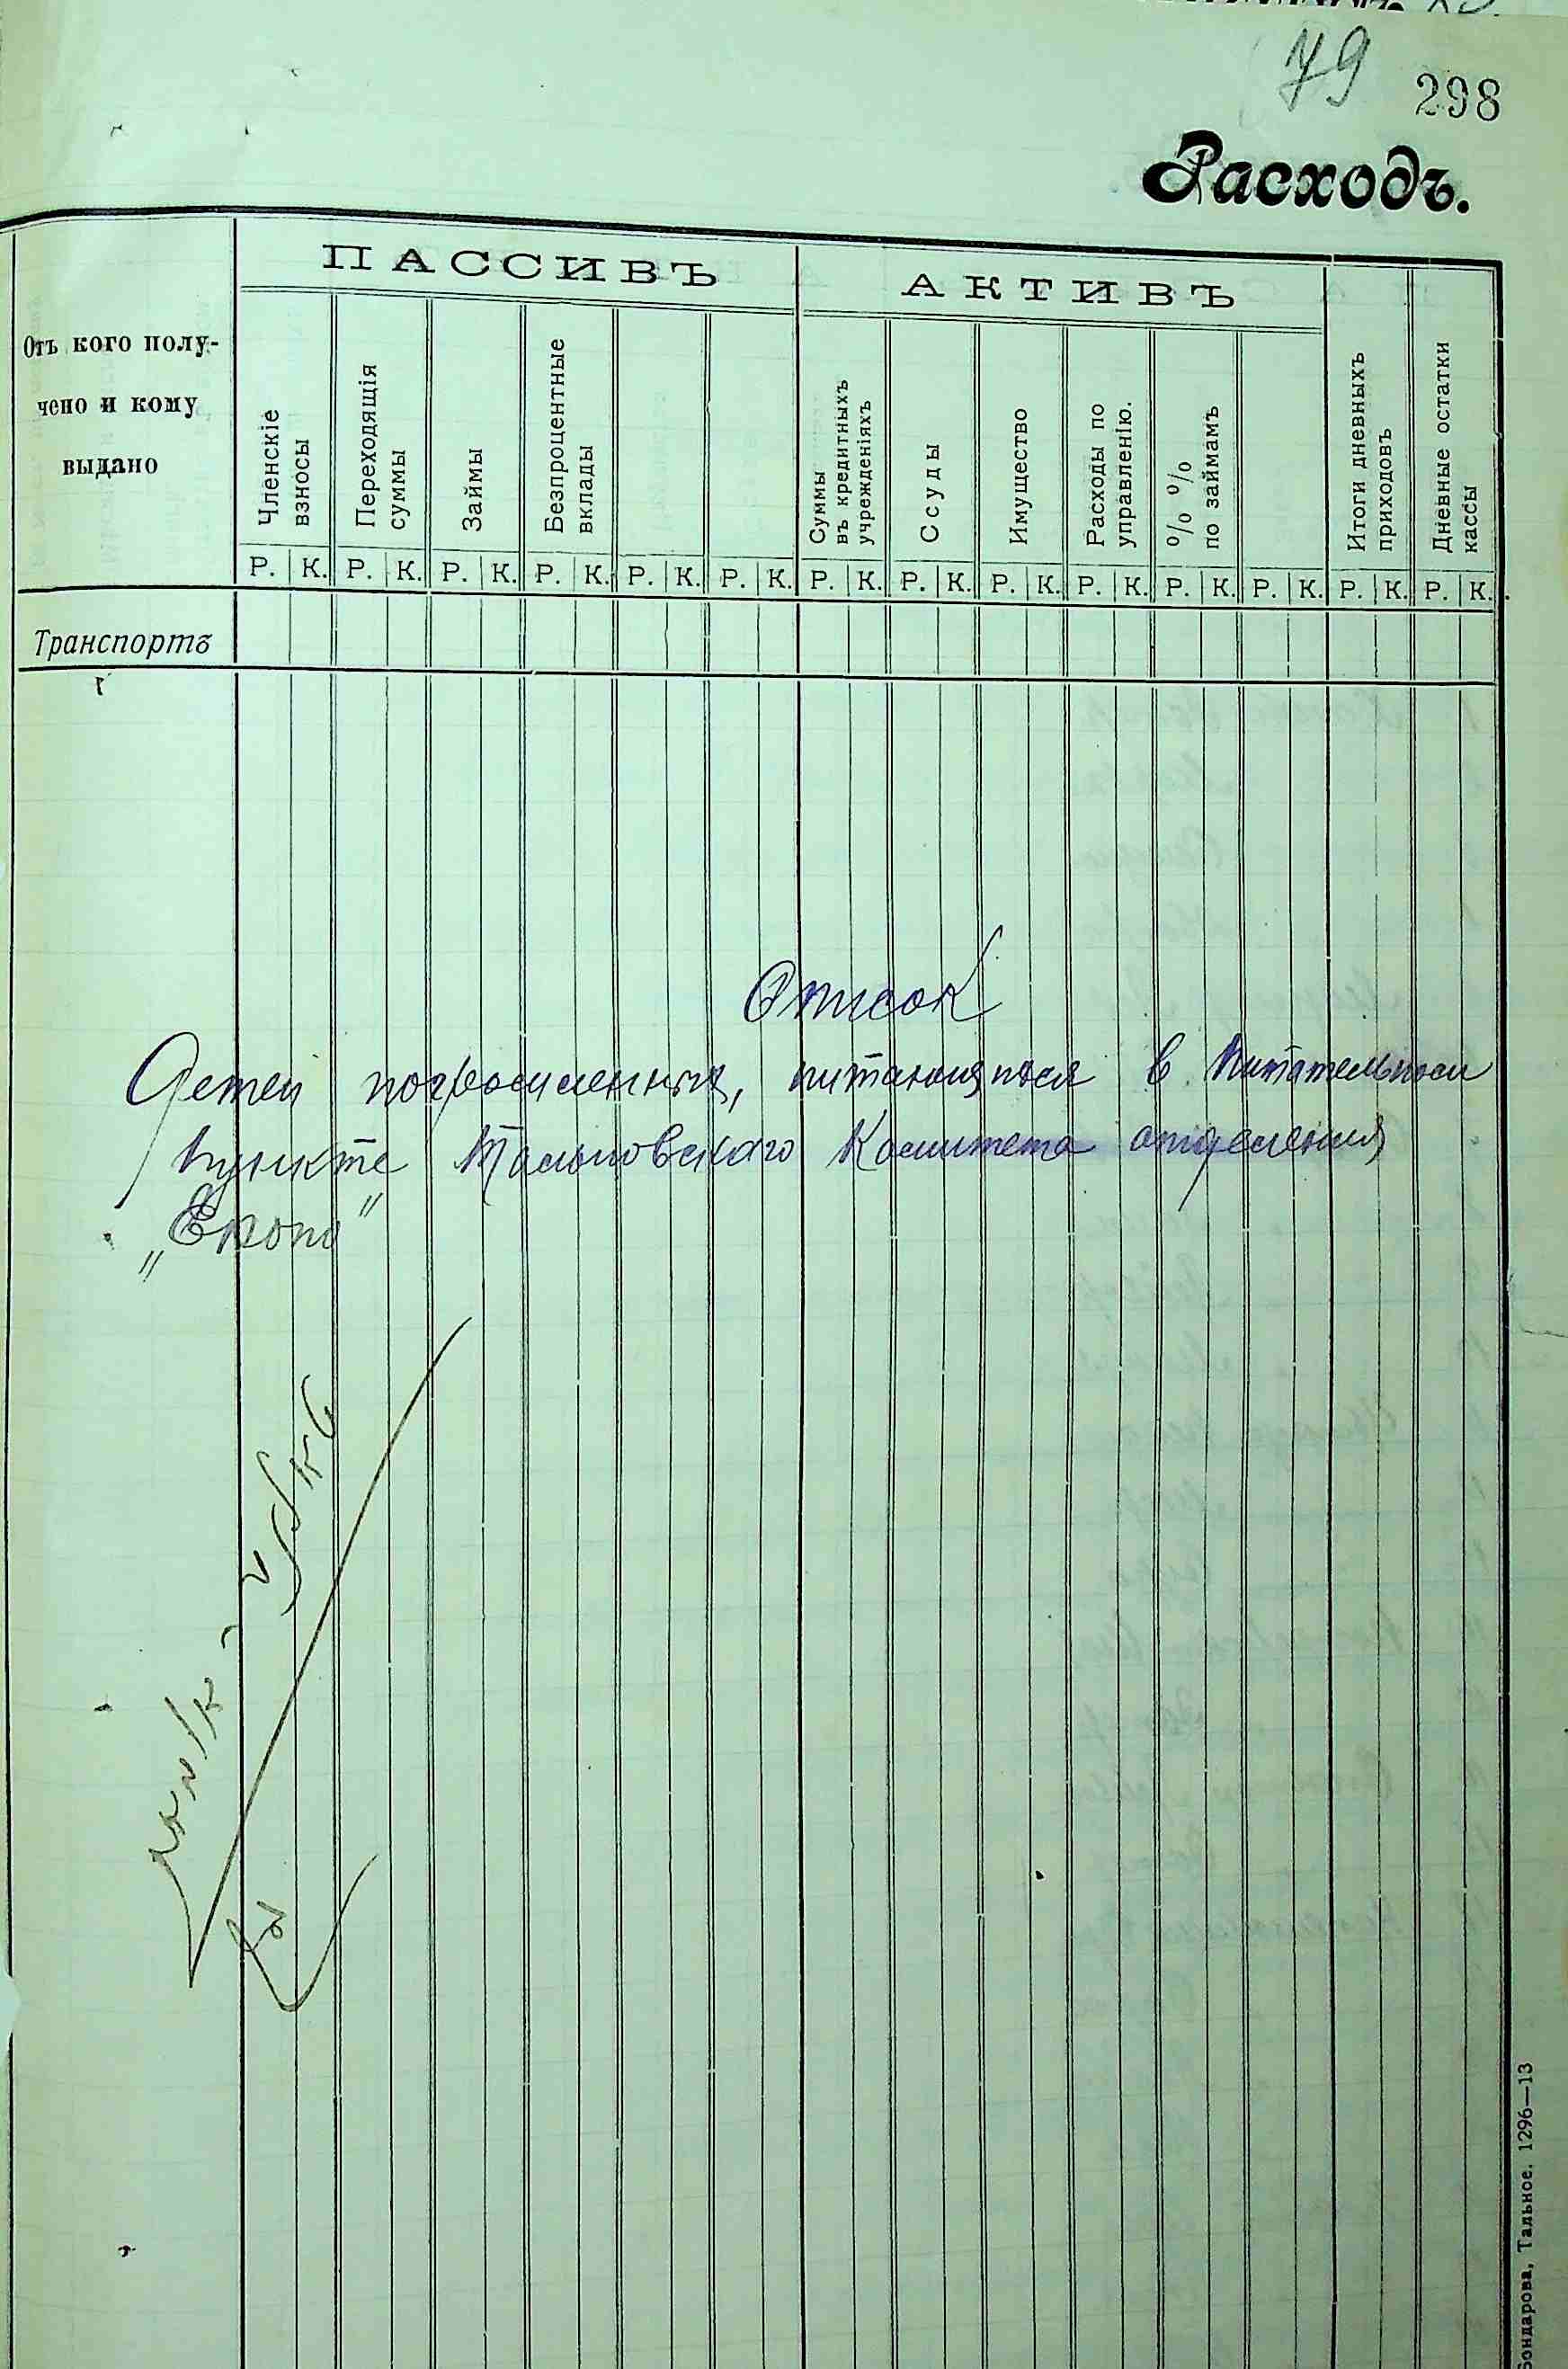 79 298
Расходъ.
Отъ кого полу-
чено и кому
выдано
ПАССИВЪ
АКТИВЪ
Членскіе
взносы
Переходящія
суммы
Займы
Безпроцентные
вклады
Суммы
въ кредитныхъ
учрежденіяхъ
Ссуды
Имущество
Расходы по
управленію.
% %
по займамъ
Итоги дневныхъ
приходовъ
Дневные остатки
кассы
Р. К. Р. К. Р. К. Р. К. Р. К. Р. К. Р. К. Р. К. Р. К. Р. К. Р. К. Р. К. Р. К. Р. К.
Транспортъ
Список
Детей погромленных, питающихся в питательном
пункте Тальновскаго Комитета отделения
„Екопо"
Бондарова, Тальное. 1296—13